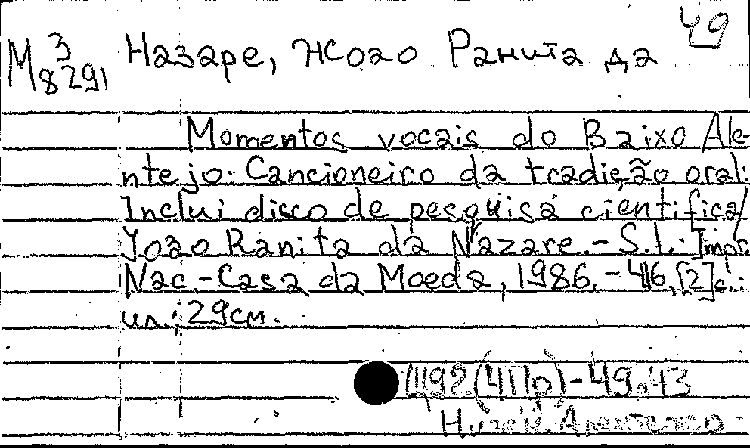 49
М 3/8291 Назаре, Жоао Ранита да
Momentos vocais do Baixo Ale-
ntejo: Cancioneiro da tradição oral:
Inclui disco de pesquisa cientifica/
João Ranita da Nazare.-S.l.: Impr.
Nac.-Casa da Moeda, 1986.-416,[2]с.:
ил.; 29см.
Ш92(4Пр)-49.43
Нижн. Алентежо